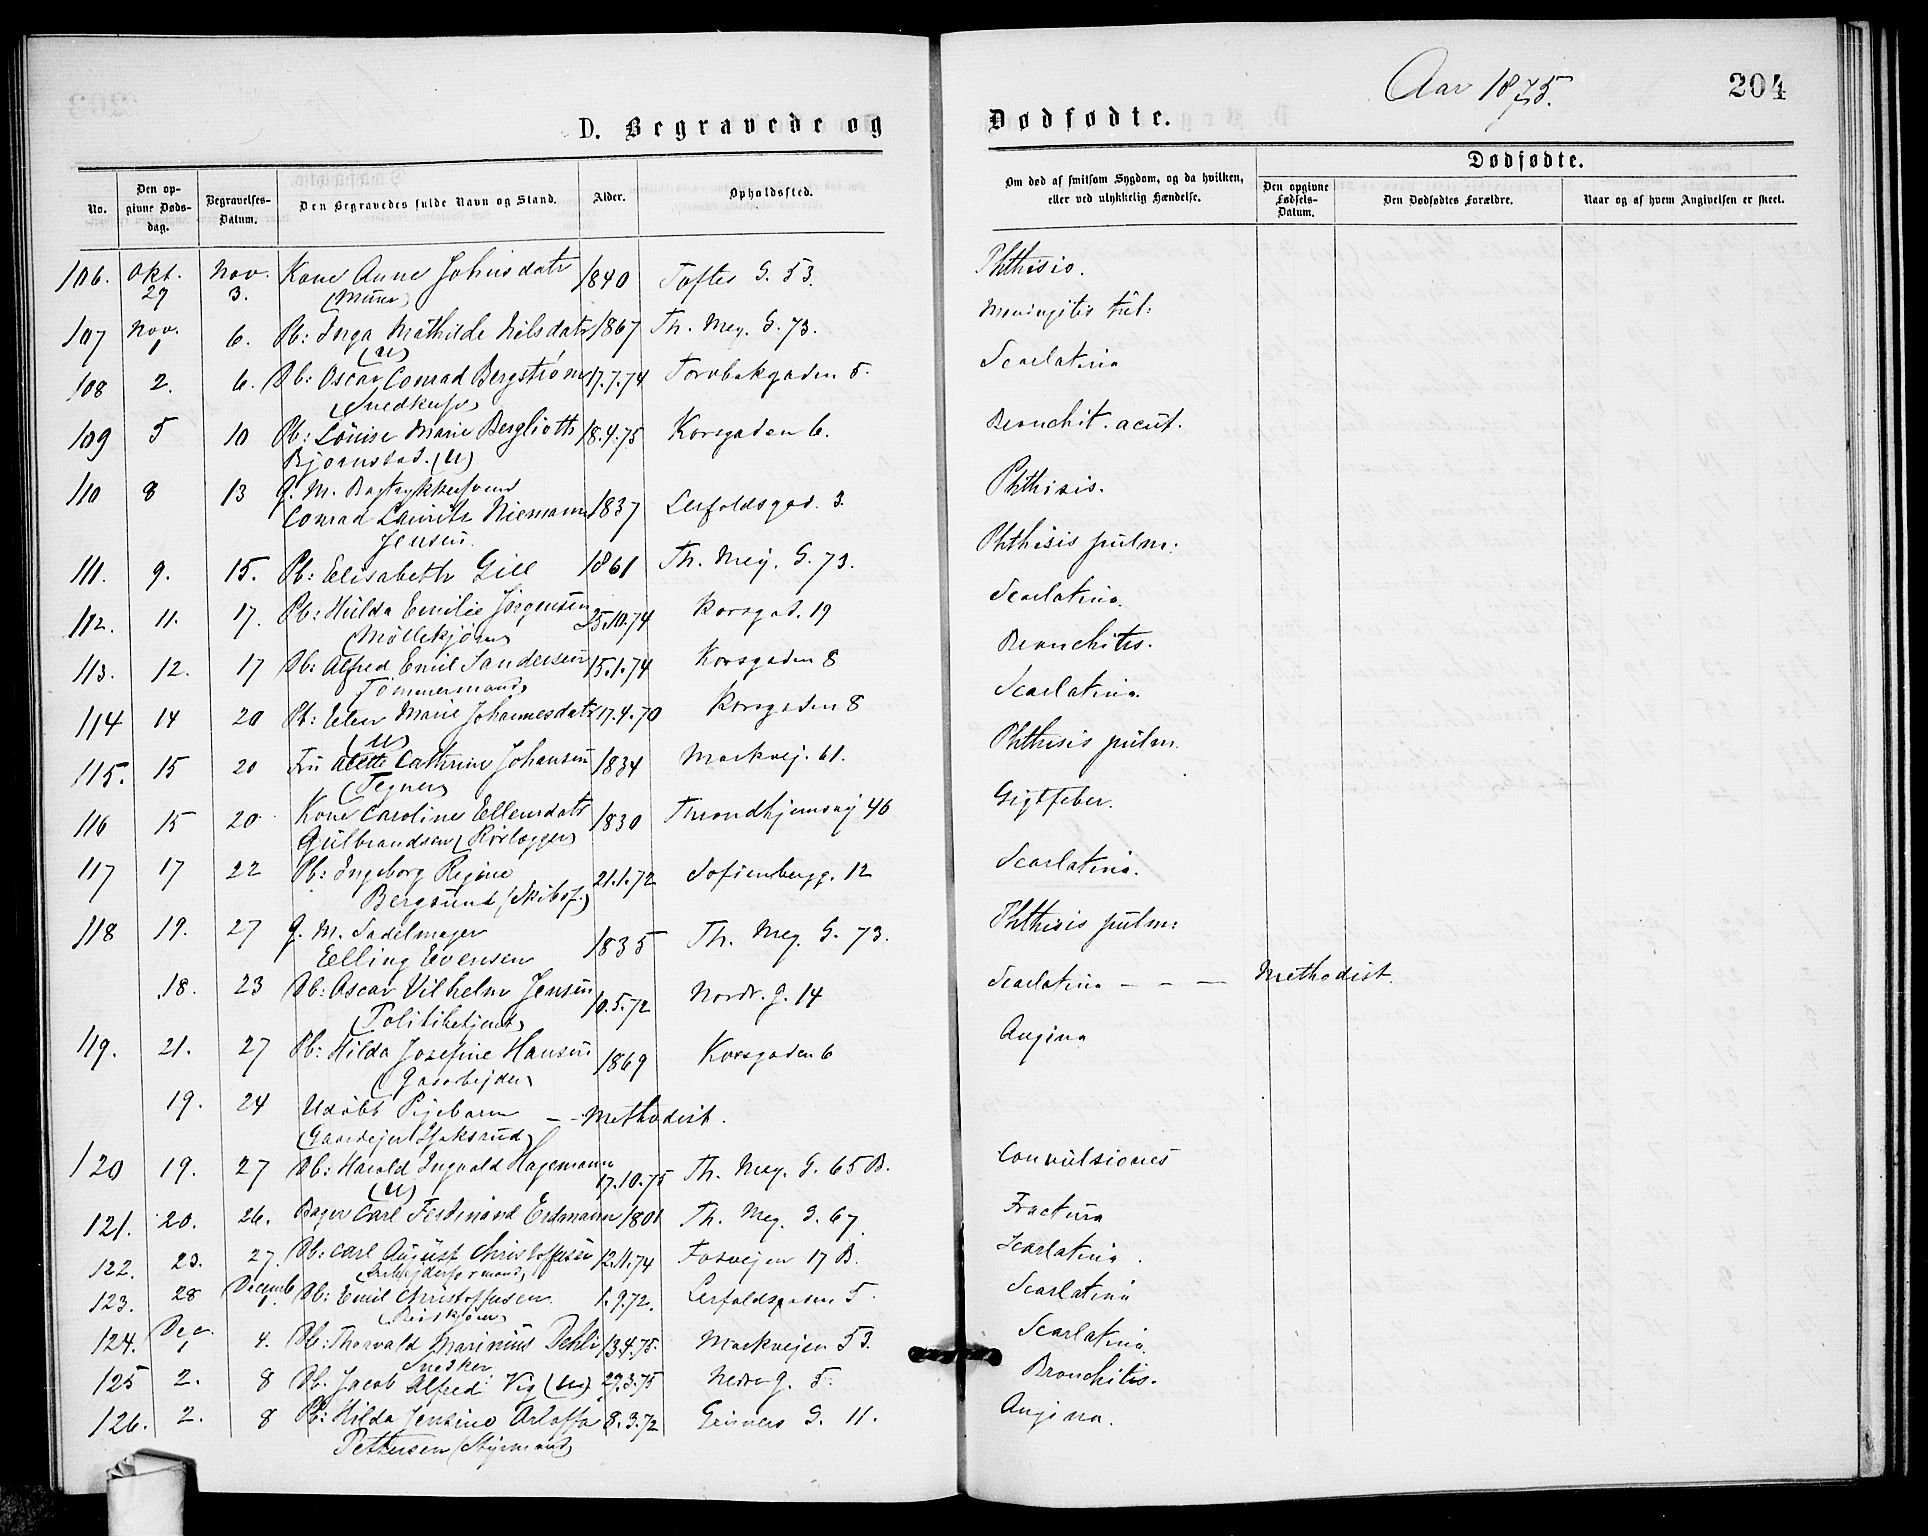 Aar 1875.
204
D. Begravede og Dødfødte.
No.
Den opgivne Dødsdag.
Begravelses-Datum.
Den Begravedes fulde Navn og Stand.
Alder.
Opholdssted.
Om død af smitsom Sygdom, og da hvilken, eller ved ulykkelig Hændelse.
Dødfødte.
Den opgivne Fødsels-Datum.
Den Dødfødtes Forældre.
Naar og af hvem Angivelsen er skeet.
106. Okt. 27 Nov. 3. Kone Anne Johnsdatr 1840 Toftes G. 53. Phthisis.
(Murer)
107 Nov. 1 6. Pb: Inga Mathilde Nilsdatr 1867 Th. Mey. G. 73. Meningitis tub:
(U)
108 2. 6. Db: Oscar Conrad Bergstrøm 17.7.74 Torvbakgaden 5. Scarlatina
(Snedkersv)
109 5 10 Pb: Louise Marie Berglioth 18.4.75 Korsgaden 6. Bronchit. acut.
Bjørnstad. (U)
110 8 13 g. M. Bogtrykkersvend
Conrad Lauritz Niemann 1837 Lerfoldsgad. 3. Phthisis.
Jensen.
111. 9. 15. Pb: Elisabeth Gill 1861 Th. Mey. G. 73. Phthisis pulm:
112. 11. 17. Pb: Hulda Emilie Jørgensen 25.10.74 Korsgad. 19 Scarlatina.
(Møllekjører)
113. 12. 17 Db: Alfred Emil Sandersen 15.1.74 Korsgaden 8 Bronchitis.
Tømmermand
114 14 20 Pb: Ellen Marie Johannesdatr 17.4.70 Korsgaden 8 Scarlatina.
(U)
115. 15 20 Fru Alette Cathrine Johansen 1834 Markvej. 61. Phthisis pulm.
(Tegner)
116 15 20 Kone Caroline Ellensdatr 1830 Throndhjemsvej 46 Gigtfeber.
Gulbrandsen (Rørlægger)
117 17 22 Pb: Ingeborg Regine 21.1.72 Sofienbergg. 12 Scarlatina.
Bergsund (Skibsf.)
118 19. 27 g. M. Sadelmager 1835 Th. Mey. G. 73. Phthisis pulm:
Elling Evensen
18. 23 Db: Oscar Vilhelm Jensen 10.5.72 Nordr. G. 14 Scarlatina - - - Methodist.
(Politibetjent)
119. 21. 27 Pb: Hilda Josefine Hansen 1869 Korsgaden 6 Angina
(Gasarbejder)
19. 24 Udøbt Pigebarn - - Methodist.
(Gaardejer)
120 19. 27 Db: Harald Ingvald Hagemann 17.10.75 Th. Mey. G. 65 B. Convulsiones
(U)
121. 20. 26. Bager Carl Ferdinand Erdmann 1801 Th. Mey. G. 67. Fractura
122. 23. 27. Db: Carl August Christoffersen 12.11.74 Fosvejen 17 B. Scarlatina.
(Arbejdsformand)
123. 28 Decemb 1. Db: Emil Christoffersen 1.9.72. Lerfoldsgaden 5. Scarlatina
124. Dec. 1 4. Db: Thorvald Marinius Dehli 13.4.75. Markvejen 53. Scarlatina.
Snedker
125 2. 8 Db. Jacob Alfred Vig (U) 29.3.75 Nedre g. 5. Bronchitis.
126. 2. 8 Pb: Hilda Jensine 8.3.72 Grüners G. 11. Angina.
Pettersen (Styrmand)